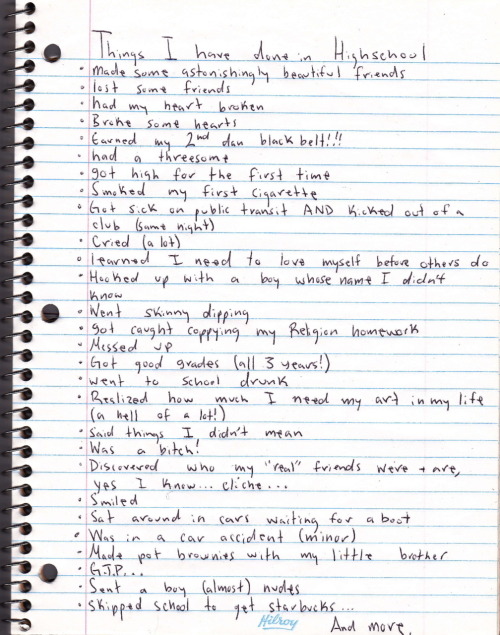 Things I have done in Highschool
• Made some astonishingly beautiful friends
• lost some friends
• had my heart broken
• Broke some hearts
• Earned my 2nd dan black belt!!!
• had a threesome
• got high for the first time
• Smoked my first cigarette
• Got sick on public transit AND kicked out of a
club (same night)
• Cried (a lot)
• learned I need to love myself before others do
• Hooked up with a boy whose name I didn't
know
• Went skinny dipping
• got caught coppying my Religion homework
• Messed up
• Got good grades (all 3 years!)
• went to school drunk
• Realized how much I need my art in my life
(a hell of a lot!)
• said things I didn't mean
• Was a bitch!
• Discovered who my "real" friends were + are,
yes I know... cliche...
• Smiled
• Sat around in cars waiting for a boot
• Was in a car accident (minor)
- Made pot brownies with my little brother
• G.T.P...
• Sent a boy (almost) nudes
• skipped school to get starbucks...
Hilroy
And more.